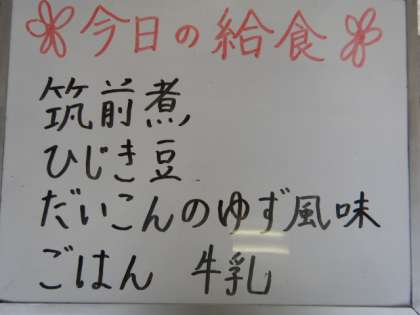 今日の給食
筑前煮
ひじき豆
だいこんのゆず風味
ごはん 牛乳